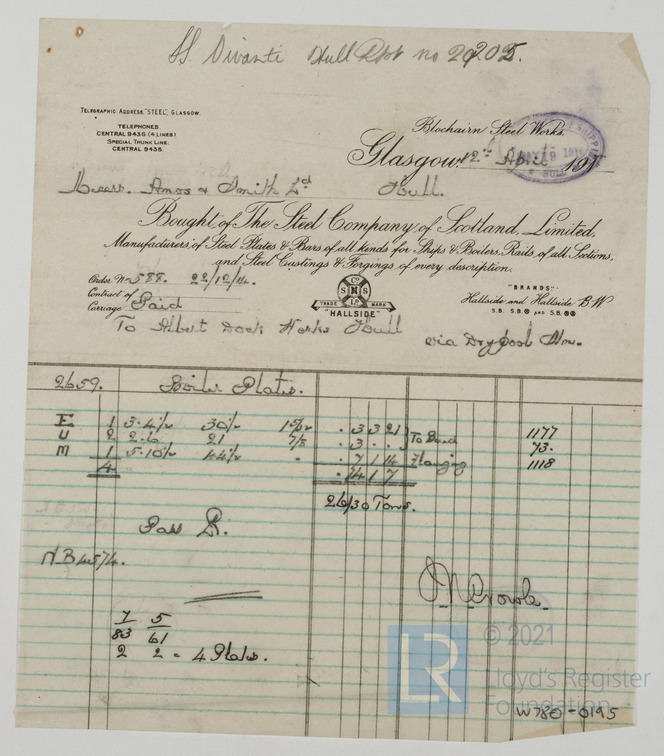 SS Divanti Hull Rpt no 29205.
TELEGRAPHIC ADDRESS, "STEEL", GLASGOW.
TELEPHONES.
CENTRAL 9436 (4 LINES)
SPECIAL TRUNK LINE:
CENTRAL 9435.
Blochairn Steel Works,
Glasgow, 12th April 191
SHIPPING
HULL
Messrs. Amos & Smith Ld Hull.
Bought of The Steel Company of Scotland, Limited,
Manufacturers of Steel Plates & Bars of all kinds for Ships & Boilers, Rails of all Sections,
and Steel Castings & Forgings of every description.
Order No 588. 22/12/14.
Contract of
Carriage Paid
Co S M S Ld
TRADE MARK
"HALLSIDE"
"BRANDS"
Hallside and Hallside B.W
S.B. S.B. AND S.B.
To Albert Dock Works Hull
via Drypool Stn.
2659. Boiler Plates.
E 1 3.4½ 30½ . 3 3 21 To Bend 1177
U 2 2.6 21 7/8 . 3 . . 73.
M 1 5.10½ 44½ . 7 1 14 Flanging 1118
4 . 14 1 7
26/30 Tons.
Pass
NB 4574.
7 5
83 61
2 2 = 4 Plates.
LR © 2021
Lloyd's Register
Foundation
W780-0195